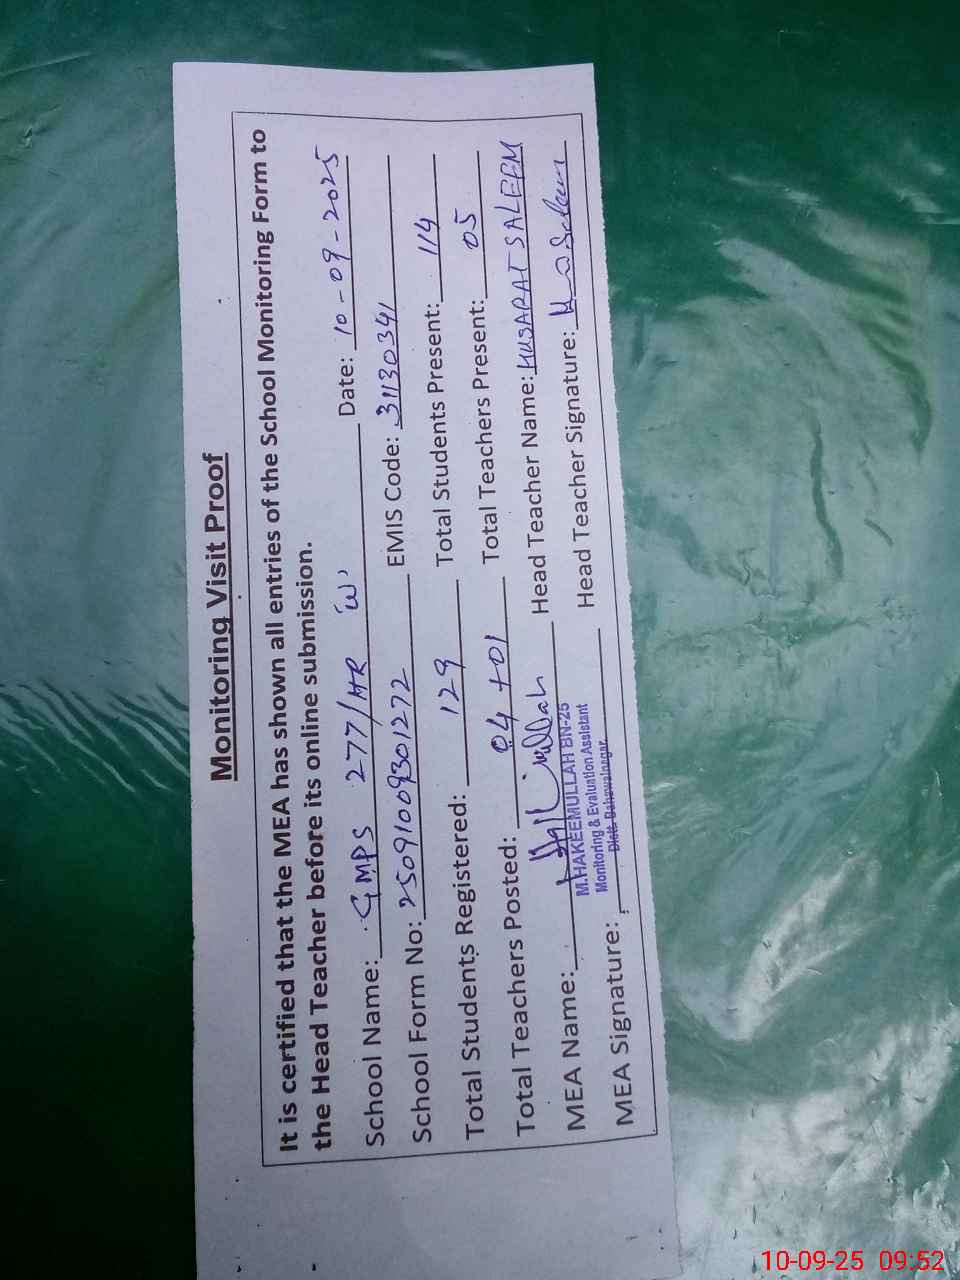 Monitoring Visit Proof
It is certified that the MEA has shown all entries of the School Monitoring Form to
the Head Teacher before its online submission.
School Name: GMPS 277/HR 'W' Date: 10-09-2025
School Form No: 25091009301272 EMIS Code: 31130341
Total Students Registered: 129 Total Students Present: 114
Total Teachers Posted: 04+01 Total Teachers Present: 05
MEA Name: Head Teacher Name: MUSARAT SALEEM
M.HAKEEMULLAH BN-25
Monitoring & Evaluation Assistant
Distt. Bahawalnagar
MEA Signature: Head Teacher Signature:
10-09-25 09:52